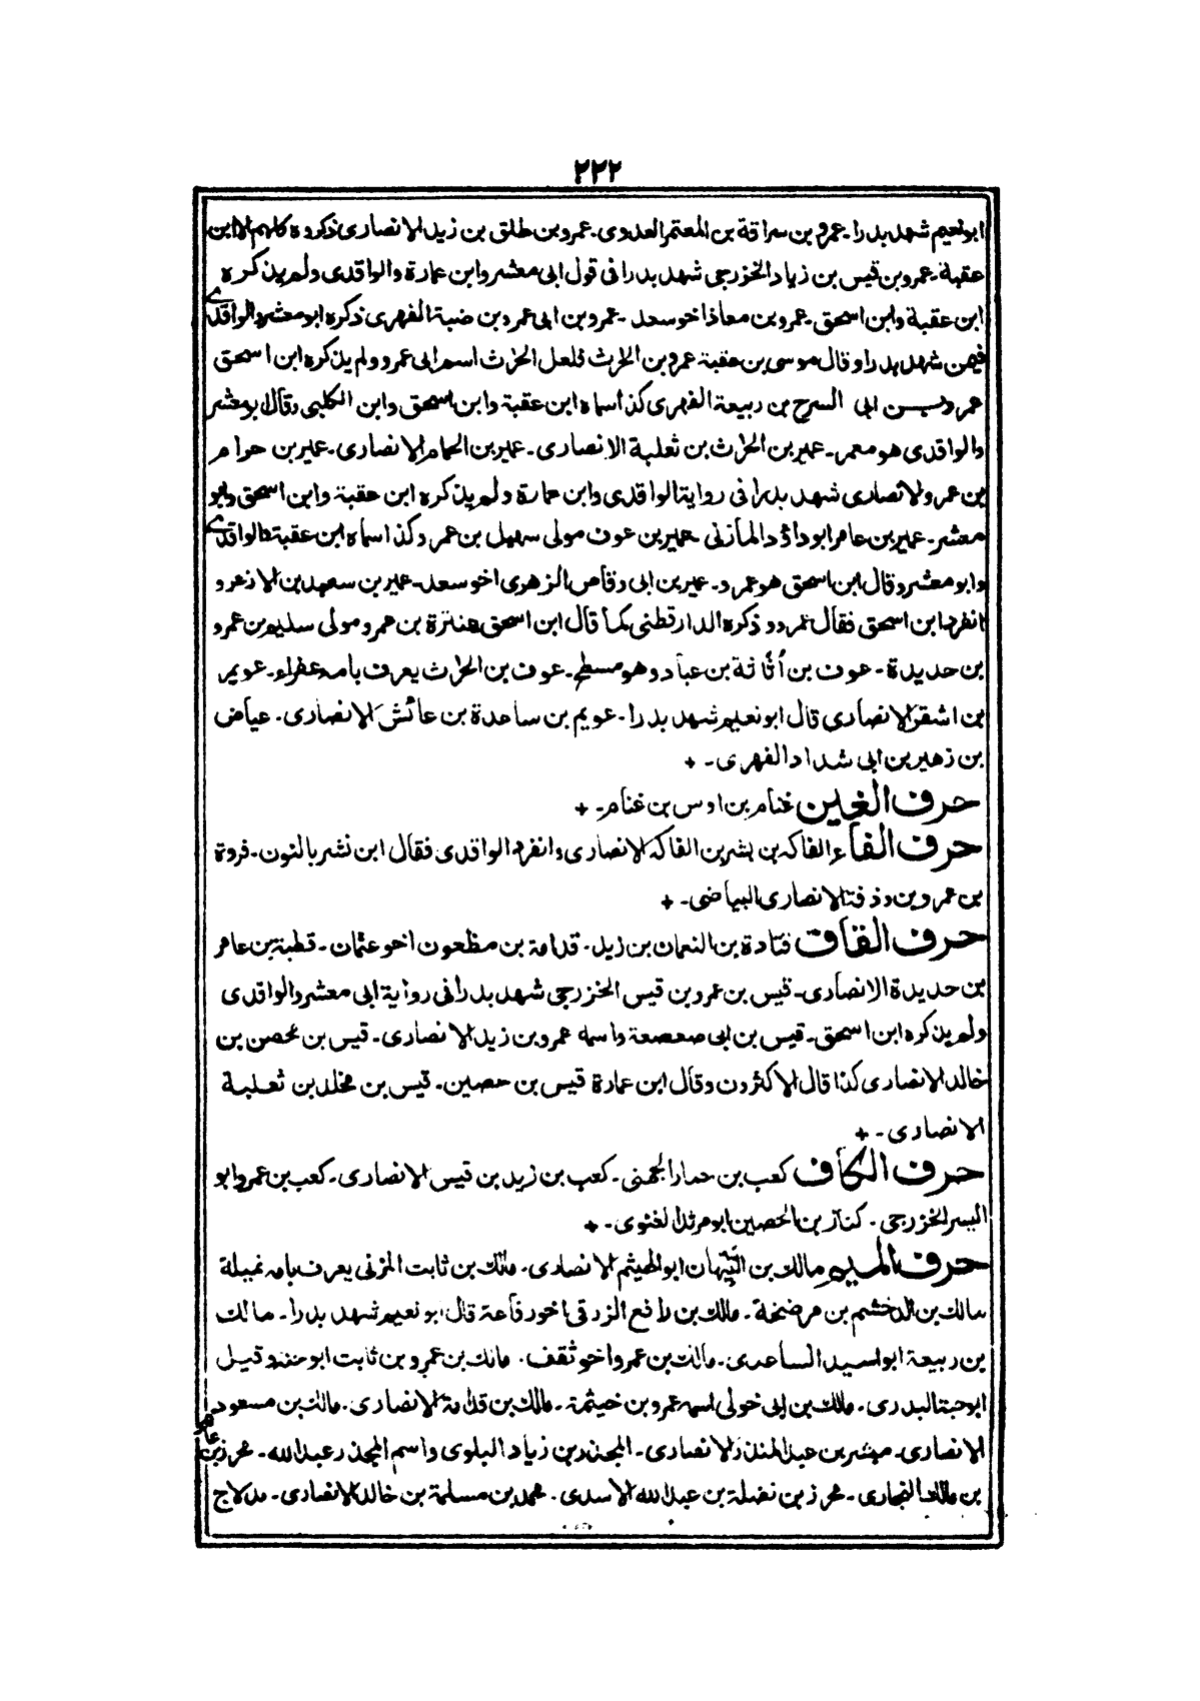 ٢٢٢
ابونعيم شهد بدرا۔ عمرو بن سراقة بن المعتمر العدوى۔ عمرو بن طلق بن زيد الانصارى ذكروه كلهم الا ابن
عقبة۔ عمرو بن قيس بن زياد الخزرجى شهد بدرا فى قول ابى معشر وابن عمارة والواقدى ولم يذكره
ابن عقبة وابن اسحق۔ عمرو بن معاذ اخو سعد ۔ عمرو بن ابى عمرو بن ضبة الفهرى ذكره ابو معشر والواقدى
فيمن شهد بدرا وقال موسى بن عقبة عمرو بن الحرث فلعل الحرث اسم ابى عمرو ولم يذكره ابن اسحق
عمرو بن ابى السرح بن ربيعة الفهرى كذا سماه ابن عقبة وابن اسحق وابن الكلبى وقال ابو معشر
والواقدى هو معمر۔ عمير بن الحرث بن ثعلبة الانصارى۔ عمير بن الحمام الانصارى۔ عمير بن حرام
بن عمرو الانصارى شهد بدرا فى رواية الواقدى وابن عمارة ولم يذكره ابن عقبة وابن اسحق وابو
معشر۔ عمير بن عامر ابو داؤد المازنى ۔ عمير بن عوف مولى سهيل بن عمرو كذا سماه ابن عقبة والواقدى
وابو معشر وقال ابن اسحق هو عمرو۔ عمير بن ابى وقاص الزهرى اخو سعد۔ عمير بن سعيد بن الازعر و
انفرد ابن اسحق فقال عمرو و ذكره الدارقطنى كما قال ابن اسحق عنترة بن عمرو مولى سليم بن عمرو
بن حديدة ۔ عوف بن أثاثة بن عباد وهو مسطح۔ عوف بن الحرث يعرف بامه عفراء۔ عويم
بن اشقر الانصارى قال ابو نعيم شهد بدرا۔ عويم بن ساعدة بن عائش الانصارى۔ عياض
بن زهير بن ابى شداد الفهرى۔ +
حرف الغين غنام بن اوس بن غنام۔ +
حرف الفاء الفاكه بن بشر بن الفاكه الانصارى وانفرد الواقدى فقال ابن نشر بالنون۔ فروة
بن عمرو بن وذفة الانصارى البياضى۔ +
حرف القاف قتادة بن النعمان بن زيد۔ قدامة بن مظعون اخو عثمان ۔ قطبة بن عامر
بن حديدة الانصارى۔ قيس بن عمرو بن قيس الخزرجى شهد بدرا فى رواية ابى معشر والواقدى
ولم يذكره ابن اسحق۔ قيس بن ابى صعصعة واسمه عمرو بن زيد الانصارى۔ قيس بن محصن بن
خالد الانصارى كذا قال الاكثرون وقال ابن عمارة قيس بن حصين۔ قيس بن مخلد بن ثعلبة
الانصارى۔ +
حرف الكاف كعب بن حمار الجهنى۔ كعب بن زيد بن قيس الانصارى۔ كعب بن عمرو ابو
اليسر الخزرجى۔ كناز بن الحصين ابو مرثد الغنوى۔ +
حرف الميم مالك بن التيهان ابو الهيثم الانصارى۔ مالك بن ثابت المزنى يعرف بامه نميلة
مالك بن الدخشم بن مرضخة ۔ مالك بن رافع الزرقى اخو رفاعة قال ابو نعيم شهد بدرا۔ مالك
بن ربيعة ابو اسيد الساعدى۔ مالك بن عمرو اخو ثقف۔ مالك بن عمرو بن ثابت ابو حنة وقيل
ابو حبة البدرى۔ مالك بن ابى خولى اسمه عمرو بن خيثمة۔ مالك بن قدامة الانصارى۔ مالك بن مسعود
الانصارى۔ مبشر بن عبد المنذر الانصارى۔ المجذر بن زياد البلوى واسم المجذر عبدالله۔ محرز بن عامر
بن مالك النجارى۔ محرز بن نضلة بن عبدالله الاسدى۔ محمد بن مسلمة بن خالد الانصارى۔ مدلاج